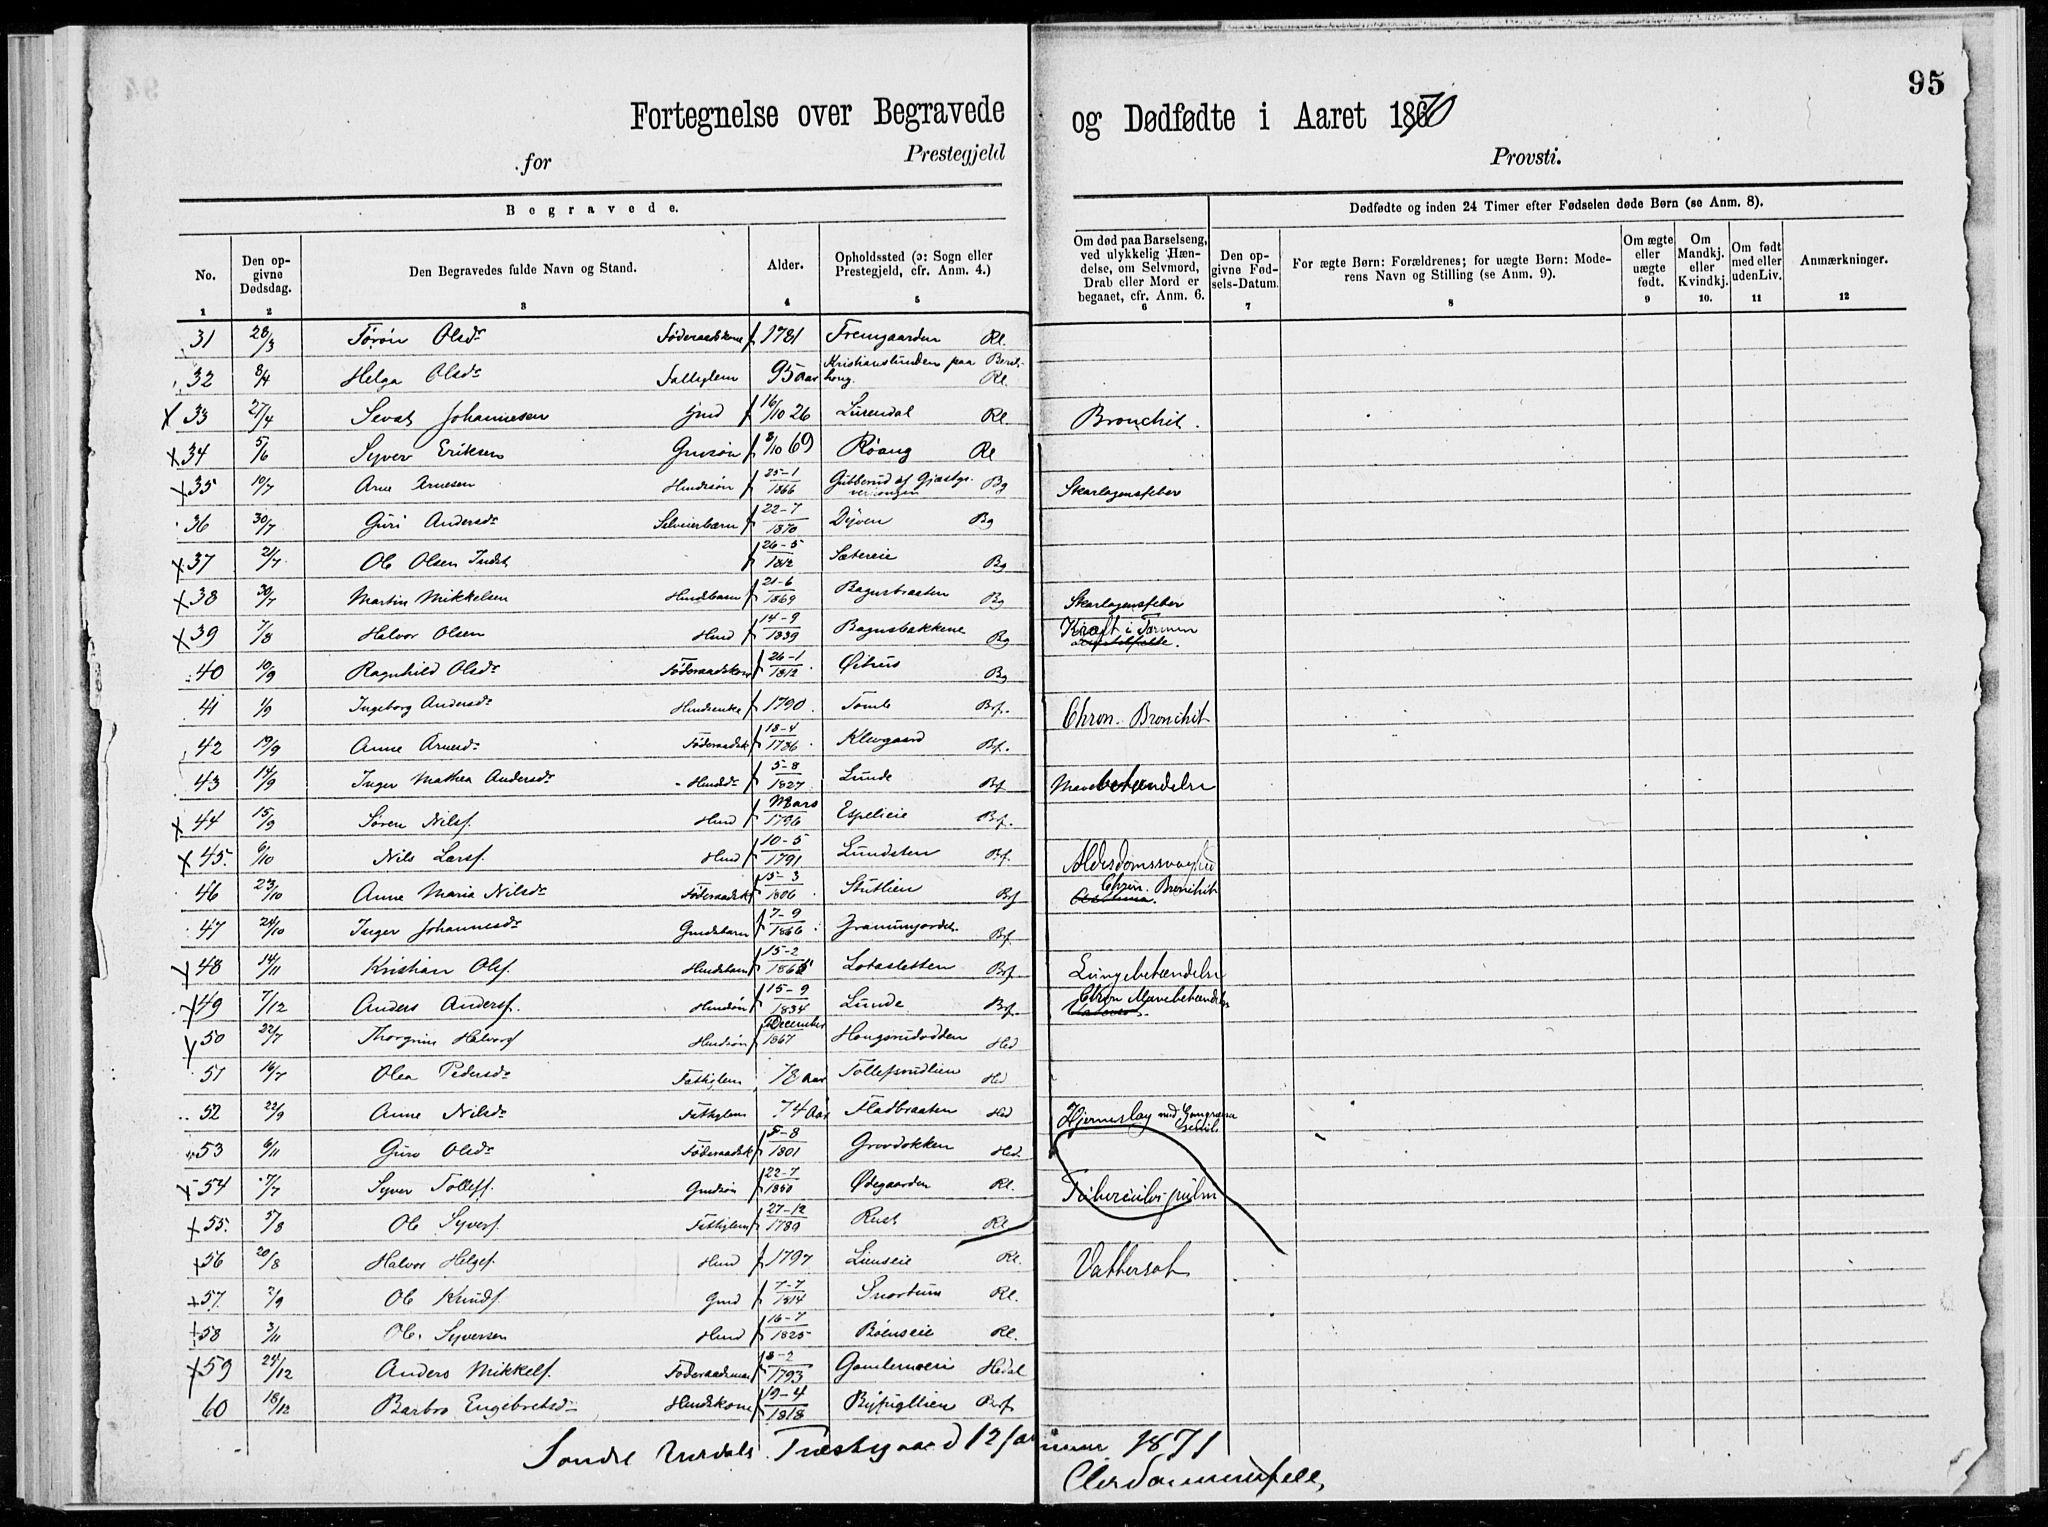 95
Fortegnelse over Begravede og Dødfødte i Aaret 1870
for Prestegjeld Provsti.
Begravede.
Dødfødte og inden 24 Timer efter Fødselen døde Børn (se Anm. 8).
No.
Den opgivne Dødsdag.
Den Begravedes fulde Navn og Stand.
Alder.
Opholdssted (ɔ: Sogn eller Prestegjeld, cfr. Anm. 4.)
Om død paa Barselseng, ved ulykkelig Hændelse, om Selvmord, Drab eller Mord er begaaet, cfr. Anm. 6.
Den opgivne Fødsels-Datum.
For ægte Børn: Forældrenes; for uægte Børn: Moderens Navn og Stilling (se Anm. 9).
Om ægte eller uægte født.
Om Mandkj. eller Kvindkj.
Om født med eller uden Liv.
Anmærkninger.
1 2 3 4 5 6 7 8 9 10. 11 12
31 28/3 Torøn Olsdr Føderaadskone f 1781 Fremgaarden Rl.
32 8/4 Helga Olsdr Fattiglem 95 aar Kristianslunden paa Rl.
x 33 27/4 Sevat Johannesen Gmd f 16/10 26 Lurendal Rl. Bronchit.
x 34 5/6 Syver Eriksen Gmsøn f 8/10 69 Røang Rl
x 35 10/7 Arne Arnesen Hmdssøn f 25-1 1866 Gubberud af Bg Skarlagensfeber
36 30/7 Guri Andersdr f 22-7 1870 Dyven Bg
x 37 21/7 Ole Olsen f 26-5 1812 Sætereie Bg
x 38 30/7 Martin Mikkelsen Hmdbarn f 21-6 1869 Bagnsbraaten Bg Skarlagensfeber
x 39 7/8 Halvor Olsen Hmd f 14-9 1839 Bagnsbakkene Bg Kræft i Tarmen
40 10/9 Ragnhild Olsdr Føderaadskone f 26-1 1812 Bg
41 1/9 Ingeborg Andersdr Hmdsenke f 1790 Tomle Brf. Chron. Bronchit
42 19/9 Anne Arnesdr Føderaadsk f 18-4 1786 Klevgaard Brf.
43 14/9 Inger Mathea Andersdr Hmdsdr f 5-8 1827 Lunde Brf Mavebetændelse
x 44 15/9 Søren Nilsf. Hmd f Mars 1796 Espelieie Brf.
x 45. 6/10 Nils Larsf. Hmd f 10-5 1791 Lundsten Brf. Alderdomssvaghed
46 23/10 Anne Maria Nilsdr Føderaadsk f 15-3 1806 Stutlien Brf Chron. Bronchit
47 24/10 Inger Johannesdr Gmdsbarn f 7-9 1866 Brf.
x 48 14/11 Kristian Olsf. Hmdsbarn f 15-2 Lotasletten Brf Lungebetændelse
x 49 7/12 Anders Andersf. Hmdsøn f 15-9 1834 Lunde Brf. Chron Mavebetændelse
x 50 22/7 Thorgrim Halvorsf Hmdssøn f December 1867 Hougsrudodden Hed
51 16/7 Olea Pedersdr Fattiglem 78 Aar Tollefsrudlien Hed
52 22/9 Anne Nilsdr Fattiglem 74 Aar Fladbraaten Hed Hjerneslag med
53 6/11 Guro Olsdr Føderaadsk f 5-8 1801 Grovdokken Hed.
x 54 7/7 Syver Tollefs. Gmdsøn f 22-7 1850 Ødegaarden Rl. Tuberculos. pulm
x 55. 5/8 Ole Syvers. Fattiglem f 27-12 1789 Rust Rl
x 56 20/8 Halvor Helgef. Hmd f 1797 Lienseie Rl. Vattersot
x 57. 2/9 Ole Knudf. Gmd f 7-7 1814 Snortum Rl.
x 58 3/11 Ole Syversen Hmd f 16-7 1825 Bøenseie Rl.
x 59 24/12 Anders Mikkelf. Føderaadsman f 8-2 1793 Gamlemoen Hedal
60 18/12 Barbro Engebretsdr Hmdskone f 19-4 1818 Brf
Søndre Aurdals Præstegaard 12 Januar 1871